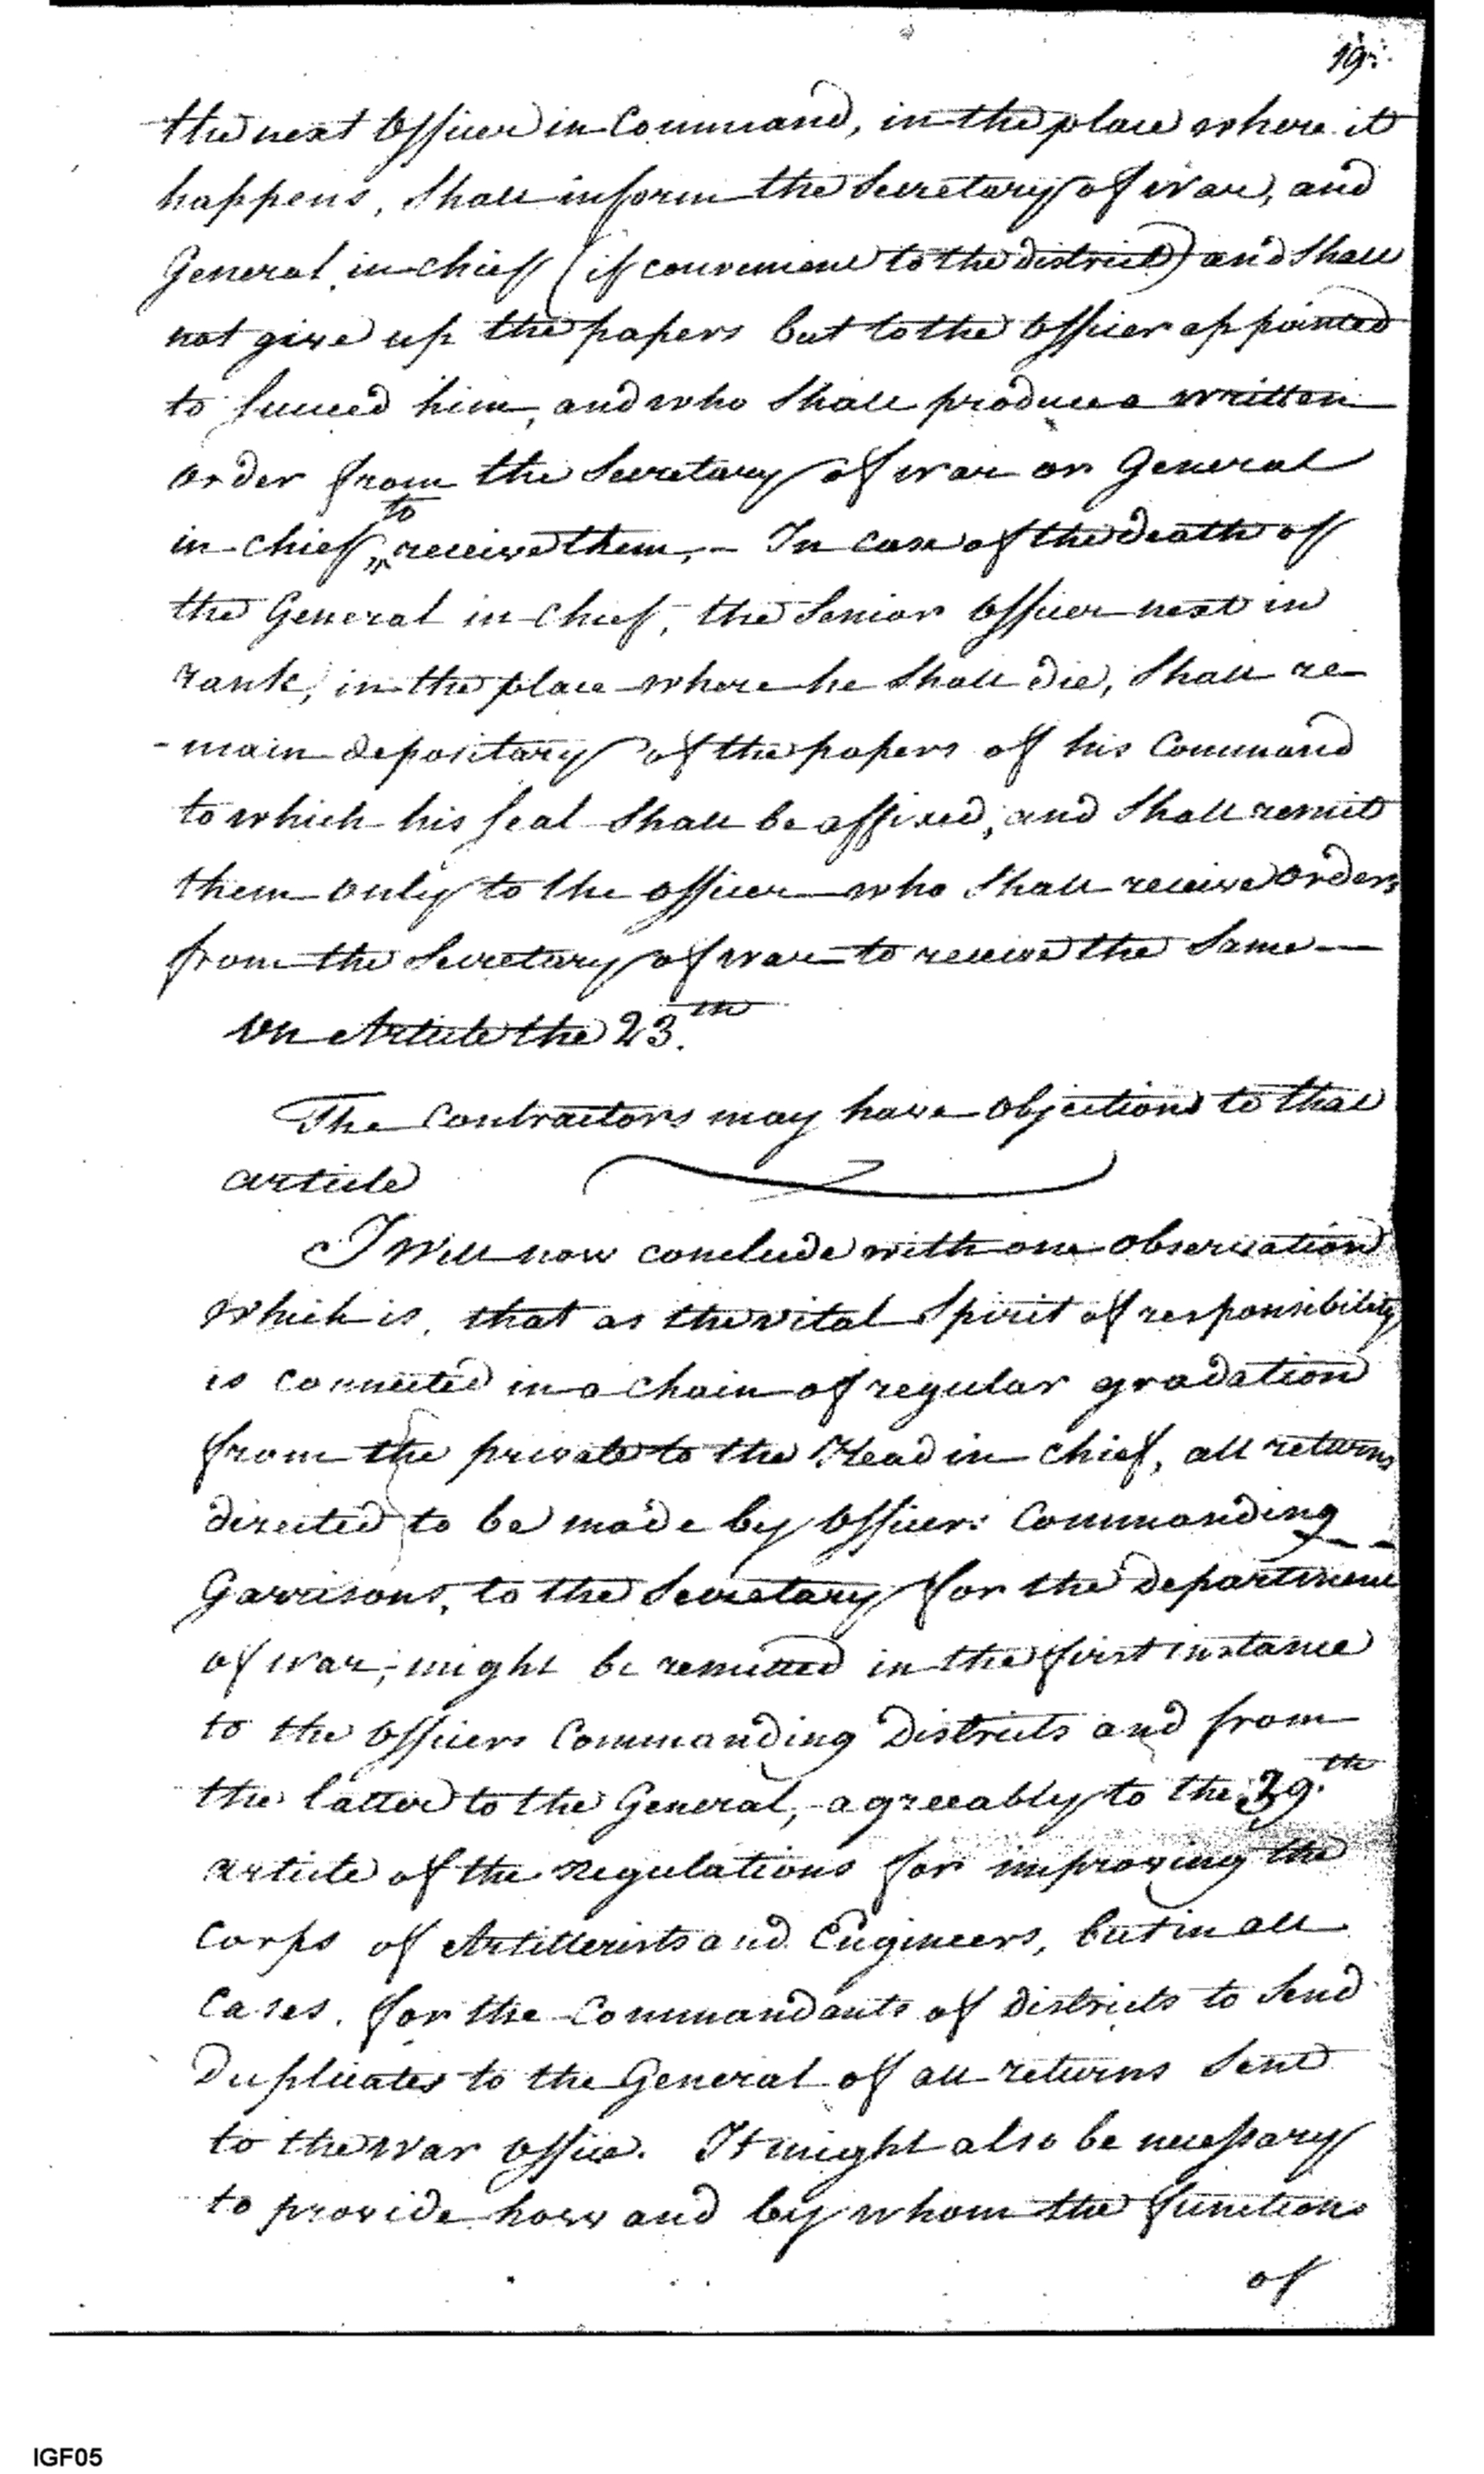 19.
the next Officer in Command, in the place where it
happens, shall inform the Secretary of war, and
General in chief (if convenient to the district) and shall
not give up the papers but to the Officer appointed
to succeed him, and who shall produce a written
order from the Secretary of war or General
to
in chief, receive them, - In case of the death of
the General in Chief, the Senior Officer next in
rank, in the place where he shall die, shall re-
-main depositary of the papers of his Command
to which his seal shall be affixed, and shall remit
them only to the officer who shall receive orders
from the Secretary of war to receive the Same—
On Article the 23.th
The Contractors may have objections to that
article
I will now conclude with one observation
which is, that as the vital Spirit of responsibility
is connected in a chain of regular gradation
from the private to the Head in chief, all returns
directed to be made by Officers Commanding
Garrisons, to the Secretary for the department
of war, might be remitted in the first instance
to the Officers Commanding Districts and from
the latter to the General, agreeably to the 39.th
article of the regulations for improving the
Corps of Artillerists and Engineers, but in all
Cases, for the Commandants of districts to Send
Duplicates to the General of all returns Sent
to the war Office. It might also be necessary
to provide how and by whom the functions
of
IGF05